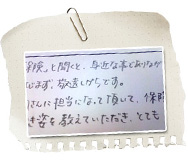 険」と聞くと、身近な事でありなが
じまず、敬遠しがちです。
さんに担当になって頂いて、保険
き姿を教えていただき、とても